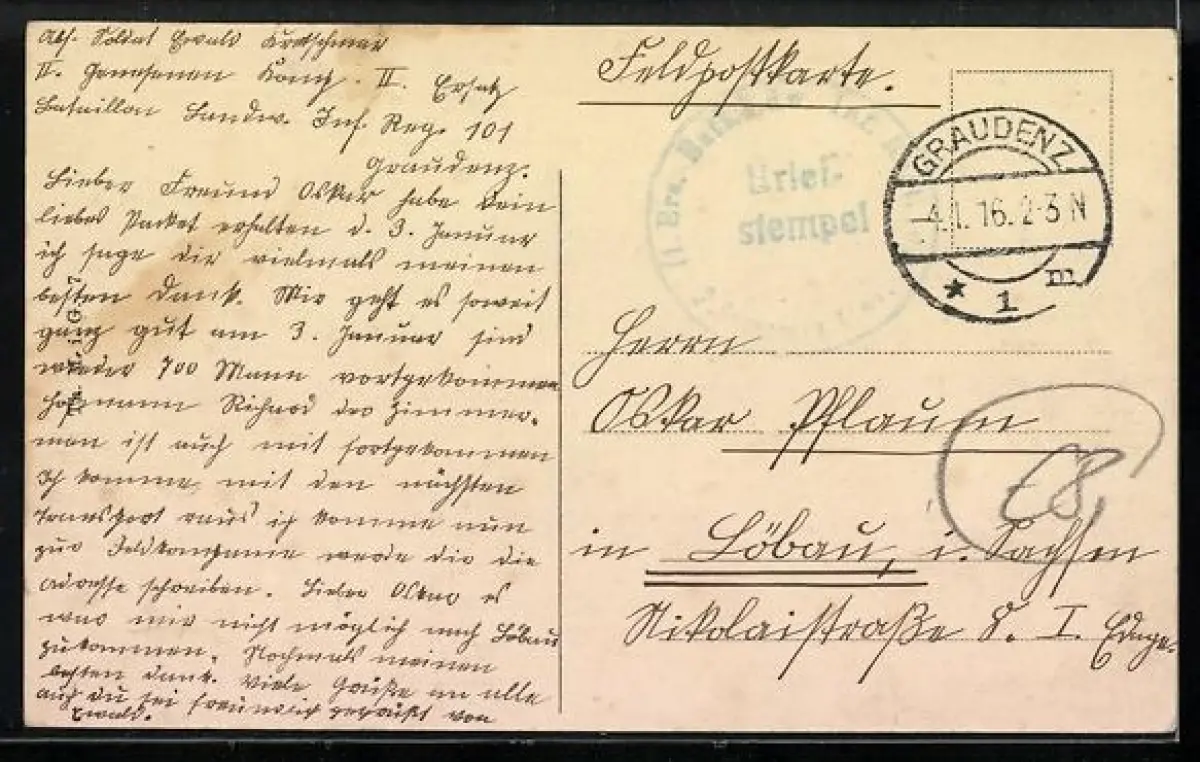 Abs. Soldat Ewald Kretschmar
II. Genesenen Komp. II. Ersatz
Bataillon Landw. Inf. Reg. 101
Graudenz.
Lieber Freund Oskar habe Dein
liebes Packet erhalten d. 3. Januar
ich sage dir vielmals meinen
besten Dank. Mir geht es soweit
ganz gut am 3. Januar sind
wieder 700 Mann fortgekommen
Hofmann Richard der Zimmer-
man ist auch mit fortgekommen
Ich komme mit den nächsten
Transport raus ich komme nun
zur Feldkompanie werde dir die
Adresse schreiben. Lieber Oskar es
war mir nicht möglich nach Löbau
zukommen. Nochmals meinen
besten Dank. Viele Grüße an alle
auch du sei freundlich gegrüßt von
Ewald.
Feldpostkarte.
Brief-
stempel
GRAUDENZ
-4.1.16.2-3 N
* 1 m
Herrn
Oskar Pflaum
in Löbau, i. Sachsen
Nikolaistraße 8. I. Etage.